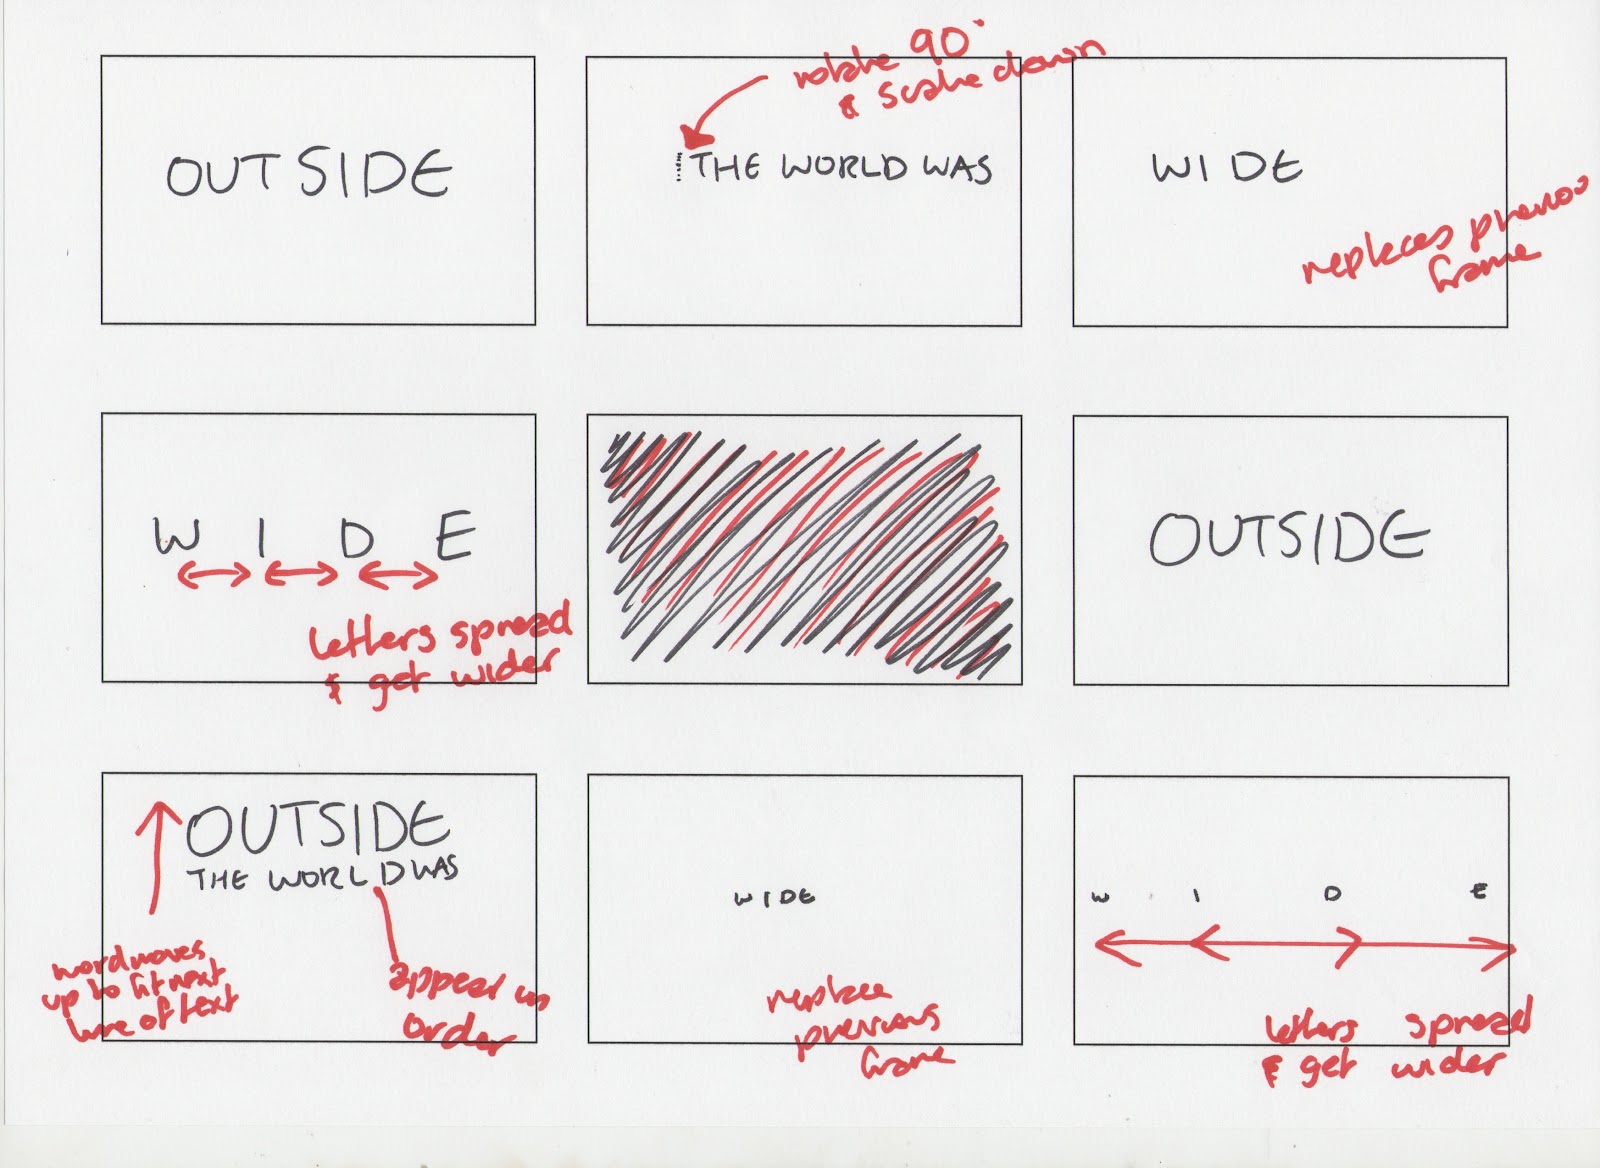 OUTSIDE
rotate 90°
& scale down
THE WORLD WAS
WIDE
replaces previous
frame
W I D E
letters spread
& get wider
OUTSIDE
OUTSIDE
THE WORLD WAS
word moves
up to fit next
line of text
appear in
order
WIDE
replace
previous
frame
W I D E
letters spread
& get wider